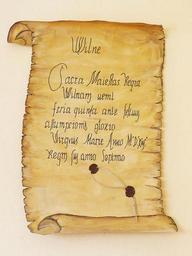 Wilne
Sacra Maiestas Regia
Wilnam venit
feria quinta ante festum
assumptionis glorio
Virginis Marie Anno M.D.
Regni sui anno Septimo